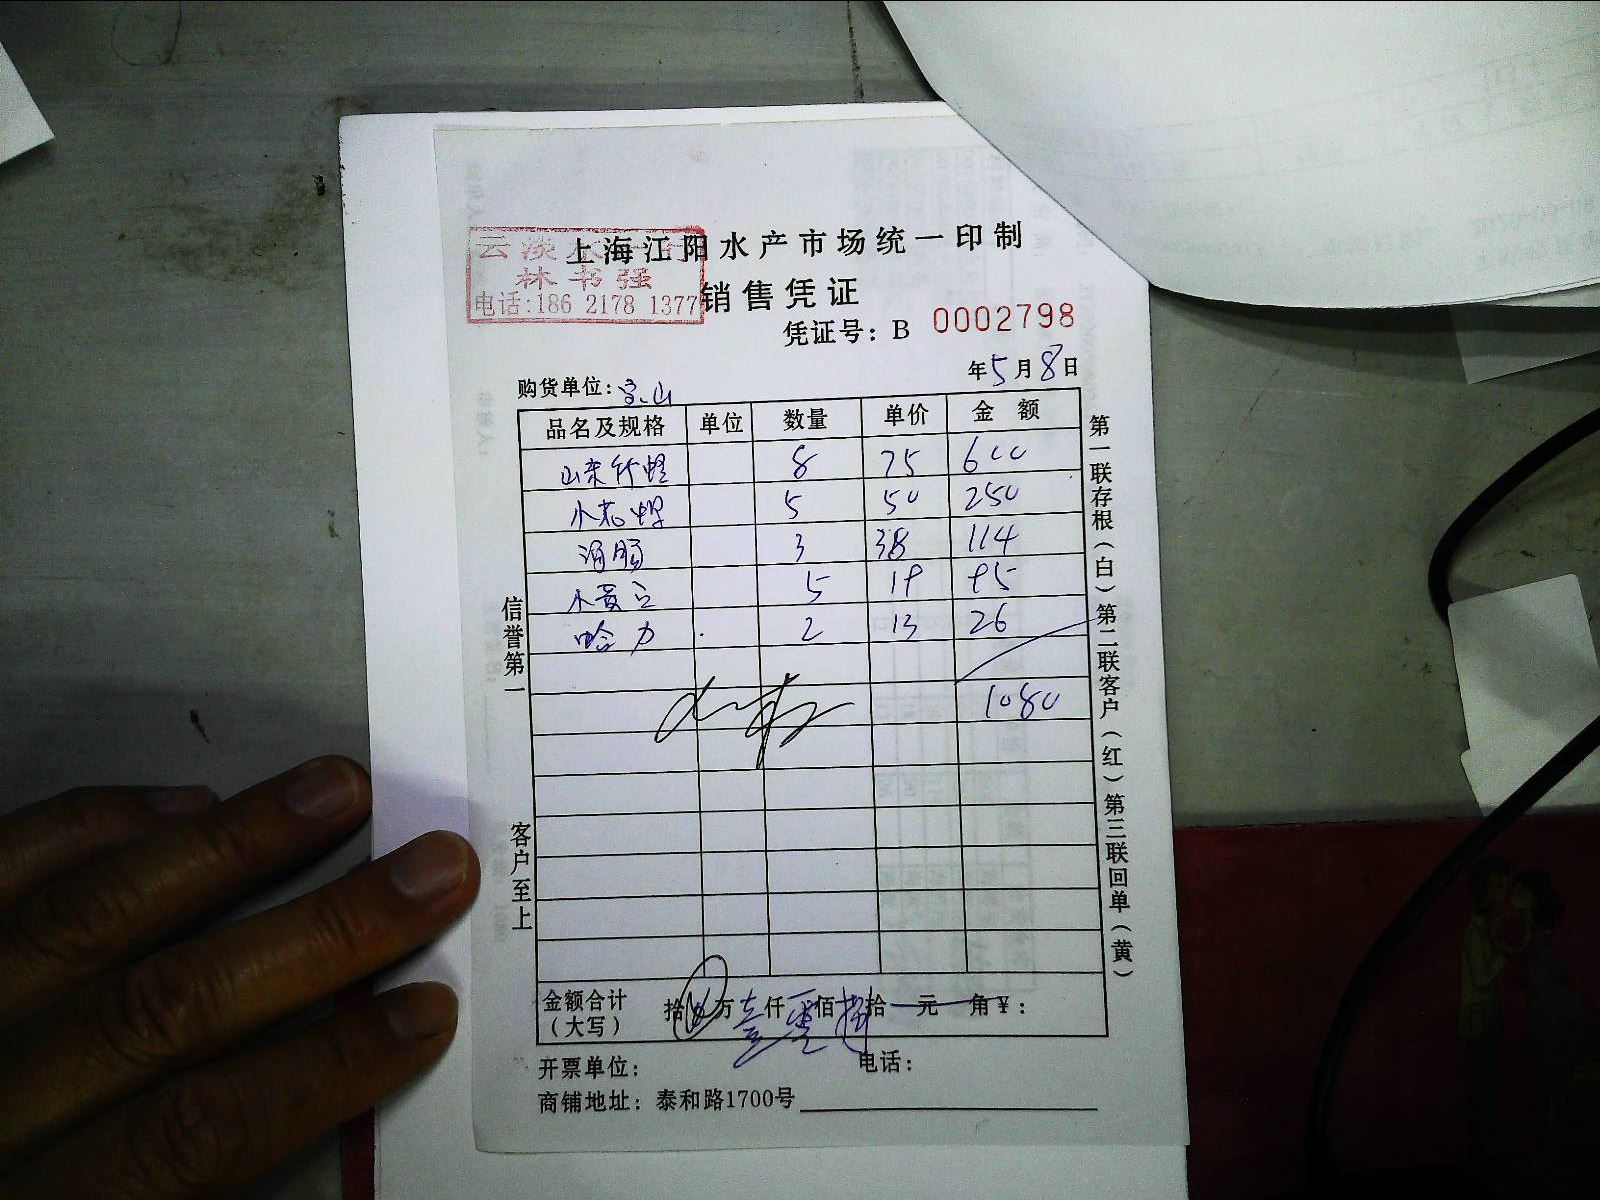 上海江阳水产市场统一印制
林书强
电话:186 2178 1377
销售凭证
凭证号: B 0002798
年5月8日
购货单位: 宝山
品名及规格 单位 数量 单价 金额
山东竹蛏 8 75 600
5 50 250
海肠 3 38 114
小黄 5 19 95
哈 2 13 26
1080
信誉第一
客户至上
第一联存根(白)第二联客户(红)第三联回单(黄)
金额合计 拾 万壹仟零佰捌拾 元 角¥:
(大写)
开票单位: 电话:
商铺地址: 泰和路1700号